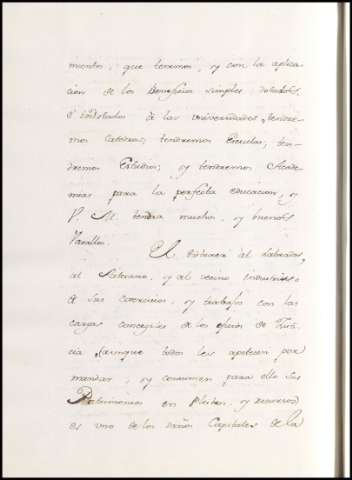 mientos, que tenemos, y con la aplica
cion de los Beneficios simples,
ó à las universidades, tendre
mos Catedras, tendremos Escuelas, ten
dremos Estudios, y tendremos Acade
mias para la perfecta educacion, y
V. M. tendrá muchos, y buenos
Vasallos.
El distraer al Labrador,
al Artesano, y al vecino Industrioso
de sus exercicios, y trabajos con las
cargas concegiles de los oficios de Justi
cia (aunque todos les apetecen por
mandar, y consumen para ello sus
Patrimonios en Pleitos, y recursos
es uno de los daños Capitales de la